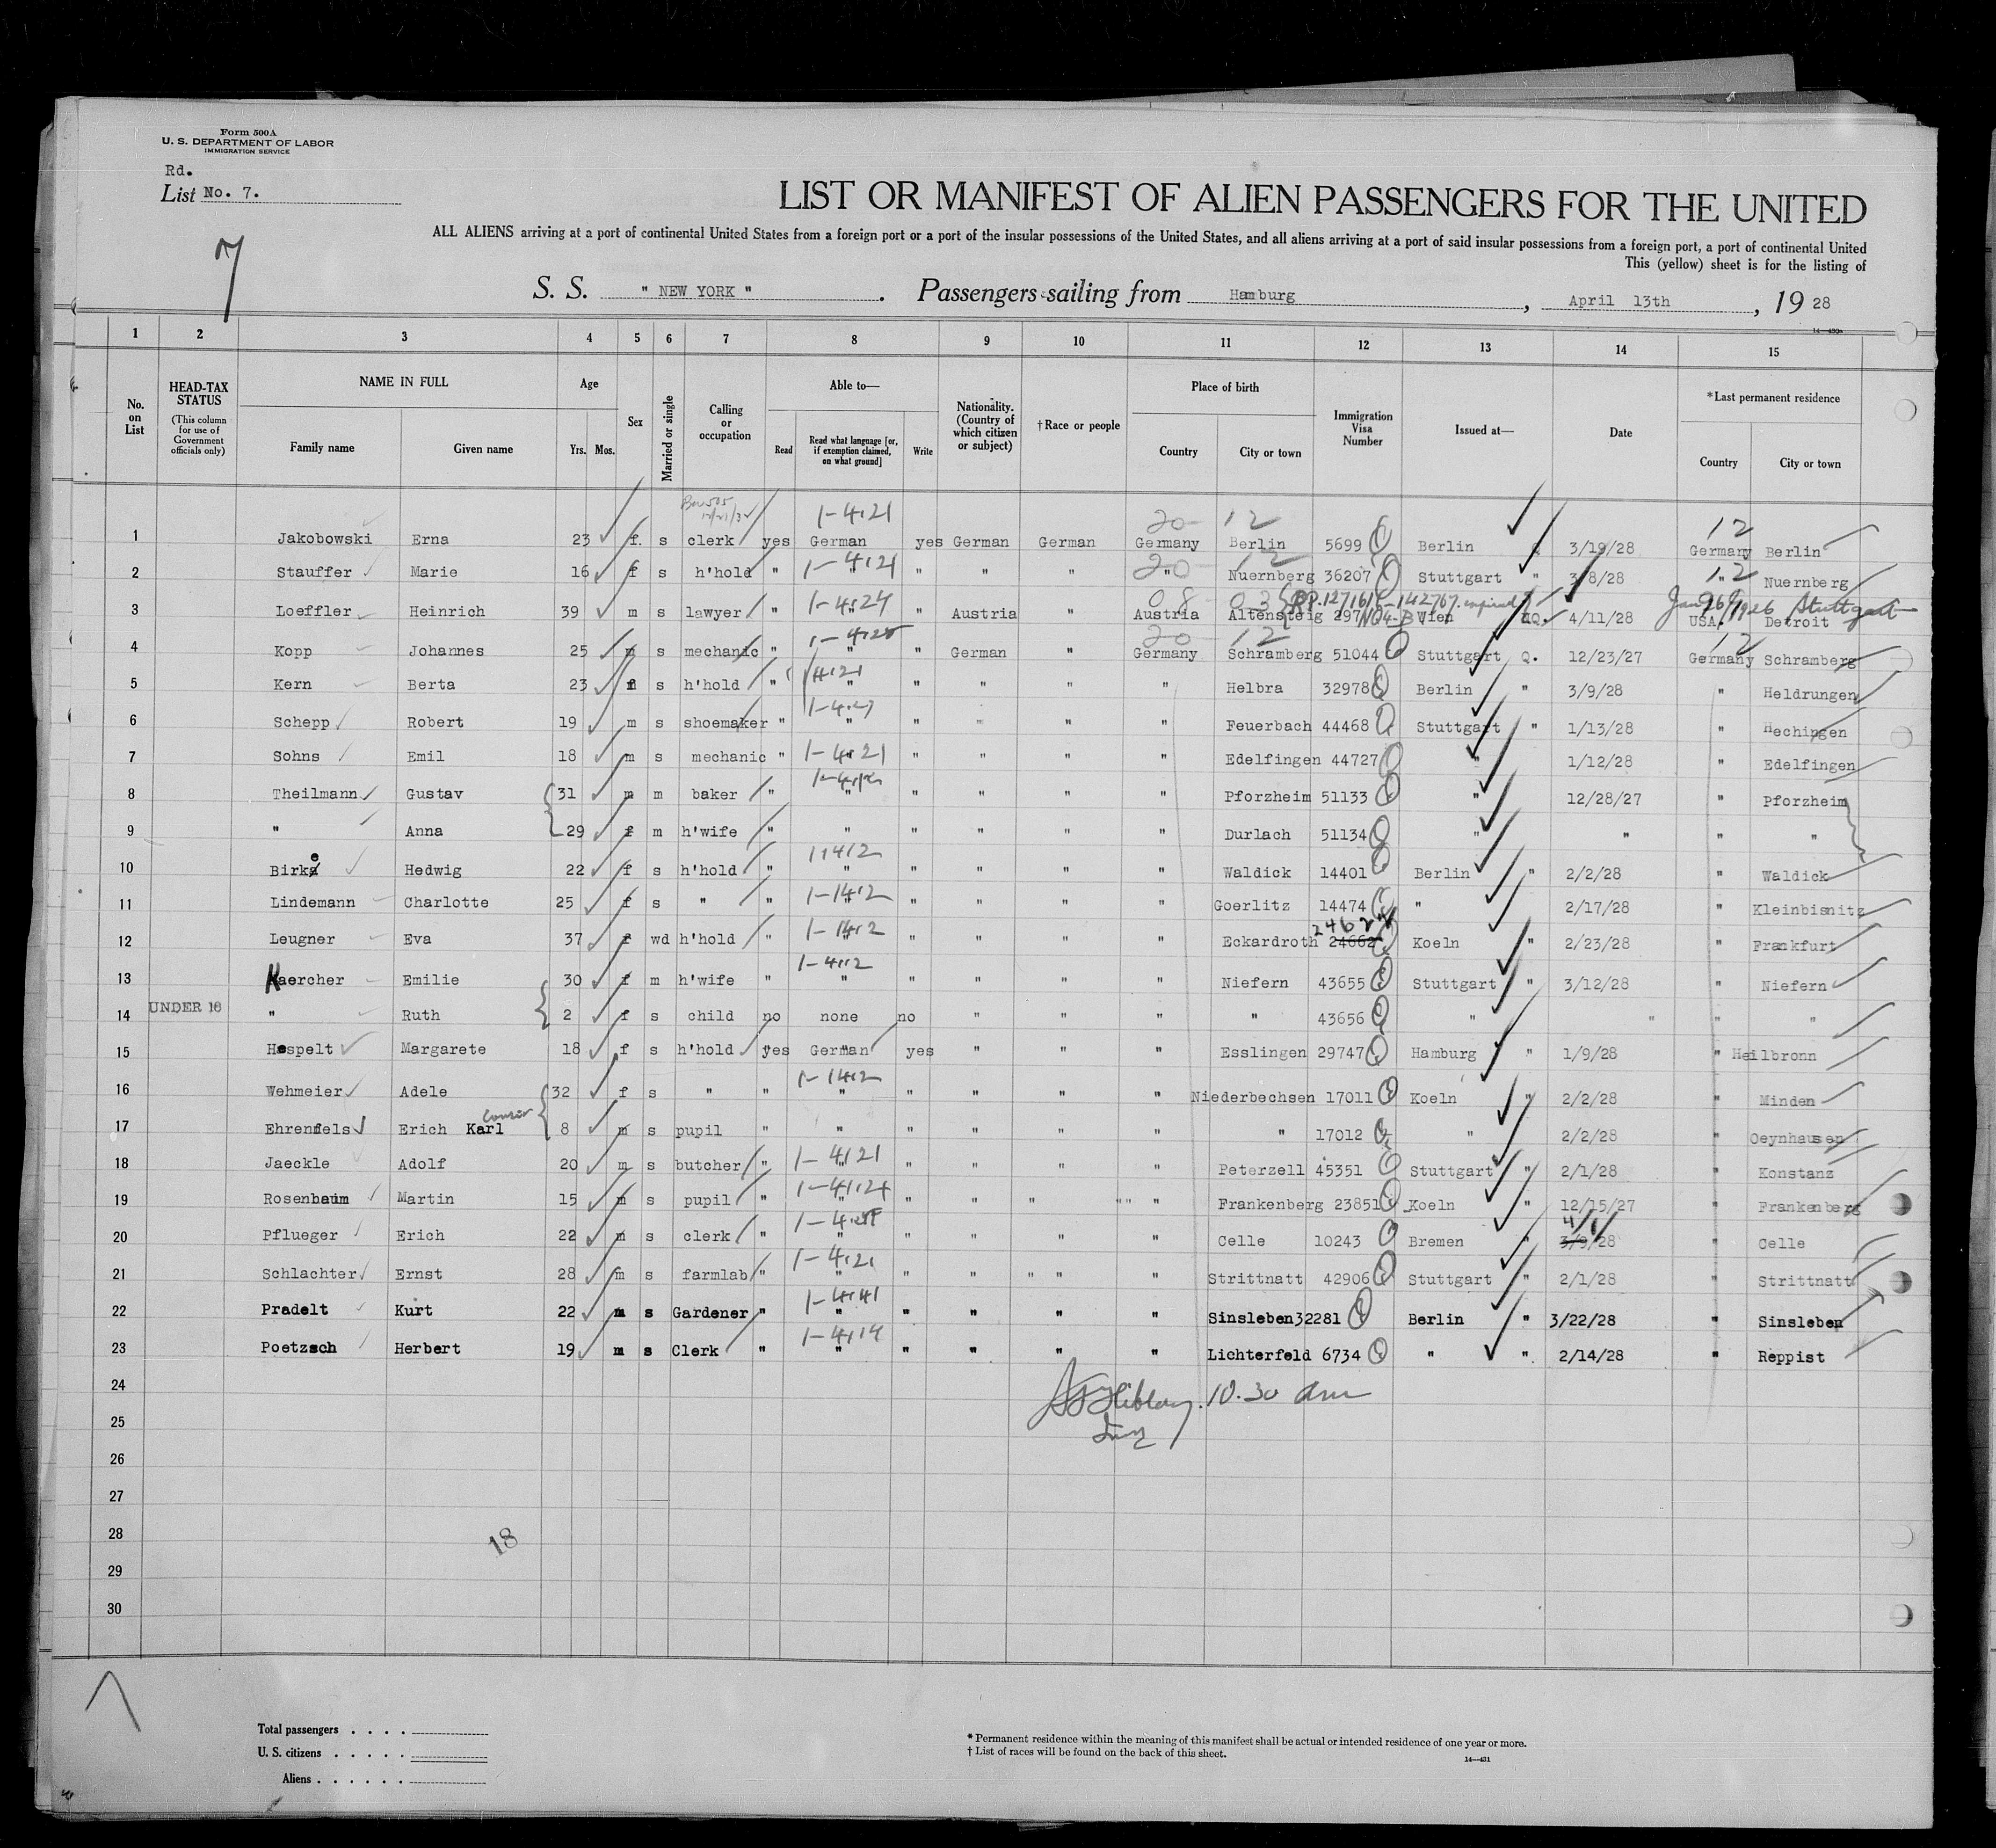 Form 500A
U. S. DEPARTMENT OF LABOR
IMMIGRATION SERVICE
Rd.
List No. 7.
7
LIST OR MANIFEST OF ALIEN PASSENGERS FOR THE UNITED
ALL ALIENS arriving at a port of continental United States from a foreign port or a port of the insular possessions of the United States, and all aliens arriving at a port of said insular possessions from a foreign port, a port of continental United
This (yellow) sheet is for the listing of
S. S. " NEW YORK " . Passengers sailing from Hamburg , April 13th , 19 28
1 2 3 4 5 6 7 8 9 10 11 12 13 14 15
No. on List
HEAD-TAX STATUS (This column for use of Government officials only)
NAME IN FULL
Family name Given name
Age
Yrs. Mos.
Sex
Married or single
Calling or occupation
Able to—
Read
Read what language [or, if exemption claimed, on what ground]
Write
Nationality. (Country of which citizen or subject)
†Race or people
Place of birth
Country City or town
Immigration Visa Number
Issued at—
Date
*Last permanent residence
Country City or town
1-4.21 20 12 12
1 Jakobowski Erna 23 f. s clerk yes German yes German German Germany Berlin 5699 Q Berlin 3/19/28 Germany Berlin
1-4.21 20 12 12
2 Stauffer Marie 16 f s h'hold " " " " " " Nuernberg 36207 Q Stuttgart " 3/8/28 " Nuernberg
1-4.24 08 03 Stuttgart
3 Loeffler Heinrich 39 m s lawyer " " " Austria " Austria Altensteig 297 Wien NQ. 4/11/28 USA. Detroit
20 12 12
4 Kopp Johannes 25 m s mechanic " " " German " Germany Schramberg 51044 Q Stuttgart Q. 12/23/27 Germany Schramberg
5 Kern Berta 23 f s h'hold " " " " " " Helbra 32978 Q Berlin " 3/9/28 " Heldrungen
6 Schepp Robert 19 m s shoemaker " " " " " " Feuerbach 44468 Q Stuttgart " 1/13/28 " Hechingen
1-4.21
7 Sohns Emil 18 m s mechanic " " " " " " Edelfingen 44727 Q " 1/12/28 " Edelfingen
8 Theilmann Gustav 31 m m baker " " " " " " Pforzheim 51133 Q " 12/28/27 " Pforzheim
9 " Anna 29 f m h'wife " " " " " " Durlach 51134 Q " " " "
e
10 Birke Hedwig 22 f s h'hold " " " " " " Waldick 14401 Q Berlin " 2/2/28 " Waldick
11 Lindemann Charlotte 25 f s " " " " " " " Goerlitz 14474 Q " 2/17/28 " Kleinbismitz
12 Leugner Eva 37 f wd h'hold " " " " " " Eckardroth 24662 Q Koeln " 2/23/28 " Frankfurt
13 Kaercher Emilie 30 f m h'wife " " " " " " Niefern 43655 Q Stuttgart " 3/12/28 " Niefern
UNDER 16
14 " Ruth 2 f s child no none no " " " " 43656 Q " " " "
15 Hespelt Margarete 18 f s h'hold yes German yes " " " Esslingen 29747 Q Hamburg " 1/9/28 " Heilbronn
16 Wehmeier Adele 32 f s " " " " " " " Niederbechsen 17011 Q Koeln " 2/2/28 " Minden
cousin
17 Ehrenfels Erich Karl 8 m s pupil " " " " " " " 17012 Q " 2/2/28 " Oeynhausen
1-4.21
18 Jaeckle Adolf 20 m s butcher " " " " " " Peterzell 45351 Q Stuttgart " 2/1/28 " Konstanz
19 Rosenbaum Martin 15 m s pupil " " " " " " " " Frankenberg 23851 Q Koeln " 12/15/27 " Frankenberg
4/1
20 Pflueger Erich 22 m s clerk " " " " " " Celle 10243 Q Bremen " 3/9/28 " Celle
1-4.21
21 Schlachter Ernst 28 m s farmlab " " " " " " " Strittnatt 42906 Q Stuttgart " 2/1/28 " Strittnatt
22 Pradelt Kurt 22 m s Gardener " " " " " " Sinsleben 32281 Q Berlin " 3/22/28 " Sinsleben
23 Poetzsch Herbert 19 m s Clerk " " " " " " Lichterfeld 6734 Q " " 2/14/28 " Reppist
24
10.30 am
25
26
27
28
18
29
30
Total passengers . . . .
U. S. citizens . . . . .
Aliens . . . . . .
* Permanent residence within the meaning of this manifest shall be actual or intended residence of one year or more.
† List of races will be found on the back of this sheet.
14—431